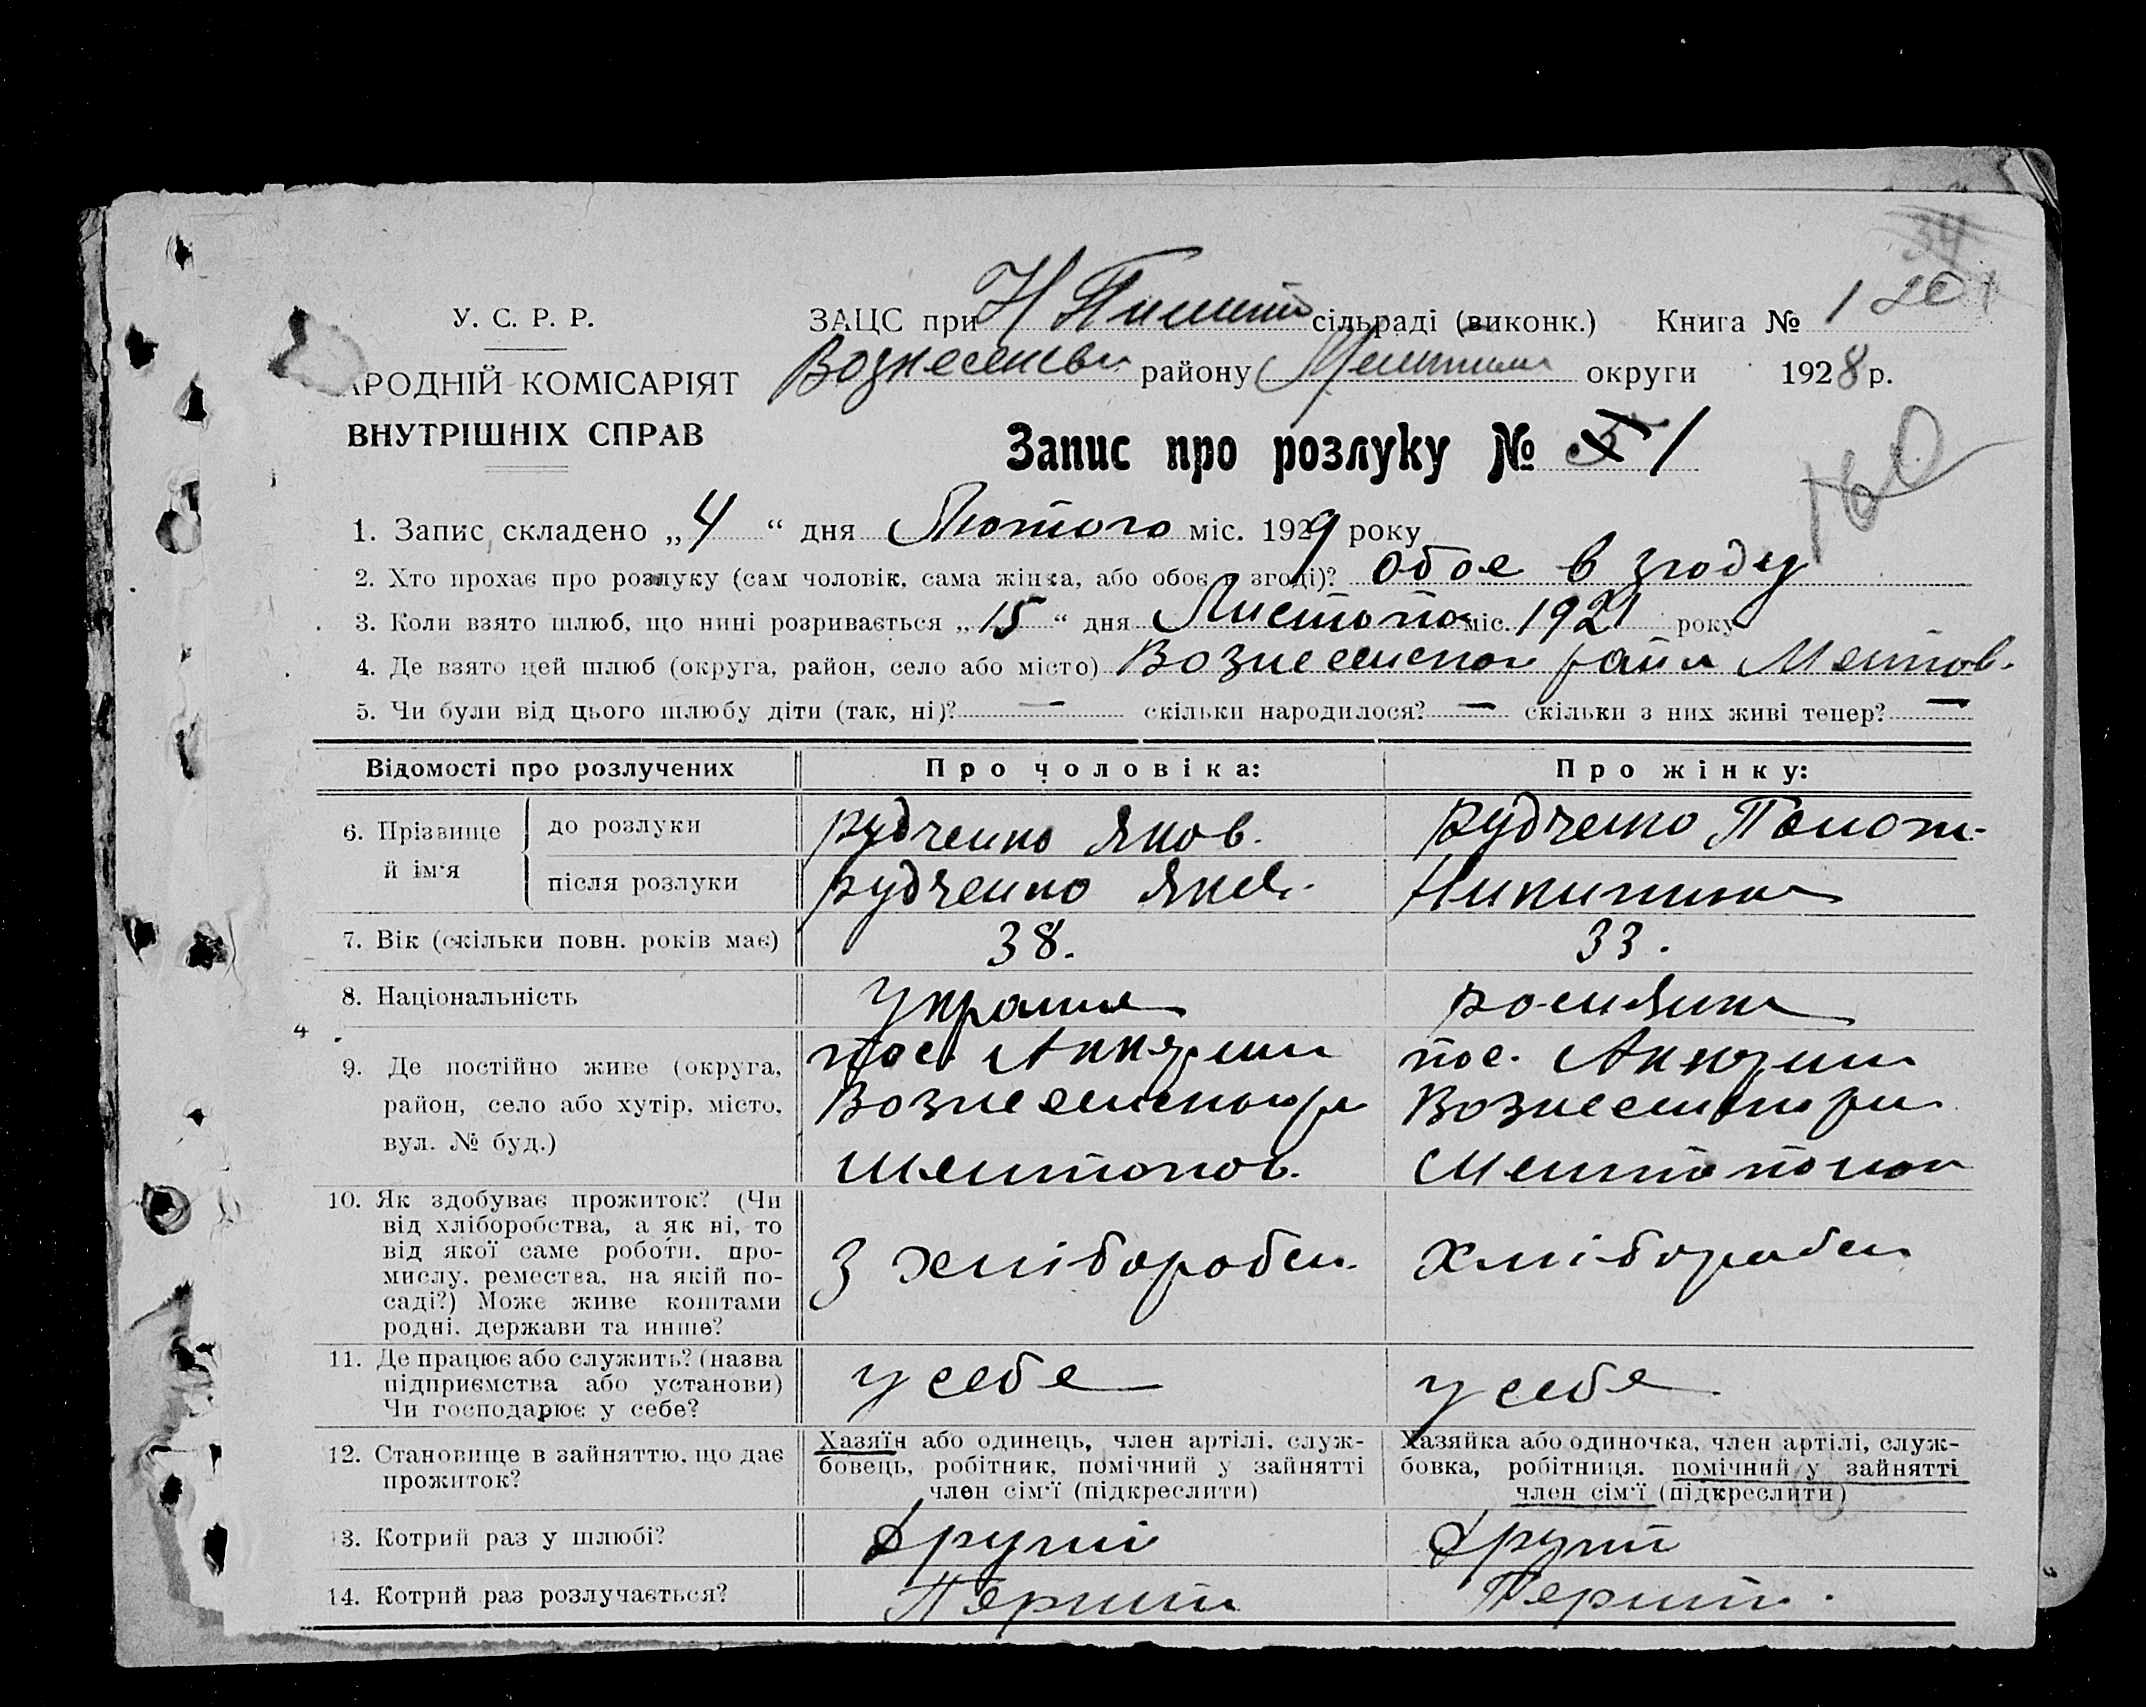 У. С. Р. Р.
АРОДНІЙ КОМІСАРІЯТ
ВНУТРІШНІХ СПРАВ
34
ЗАЦС при Н сільраді (виконк.) Книга № 1
району округи 1928 р.
Запис про розлуку № 1
1. Запис складено „4“ дня Лютого міс. 1929 року
2. Хто прохає про розлуку (сам чоловік, сама жінка, або обоє в згоді)? обоє в згоду
3. Коли взято шлюб, що нині розривається „15“ дня Листопа міс. 1921 року
4. Де взято цей шлюб (округа, район, село або місто) Вознесенськ рай
5. Чи були від цього шлюбу діти (так, ні)? — скільки народилося? — скільки з них живі тепер? —
Відомості про розлучених
Про чоловіка:
Про жінку:
6. Прізвище й ім'я
до розлуки
Рудченко Яков.
Рудченко
після розлуки
Рудченко Яков.
Никитина
7. Вік (скільки повн. років має)
38.
33.
8. Національність
Україн
росиянк
4
9. Де постійно живе (округа,
район, село або хутір, місто,
вул. № буд.)
пос.
Вознесенськ
Мелитопов.
пос.
Вознесенськ
Мелитопол
10. Як здобуває прожиток? (Чи
від хліборобства, а як ні, то
від якої саме роботи, про-
мислу, ремества, на якій по-
саді?) Може живе коштами
родні, держави та инше?
З хліборобс.
Хліборобс
11. Де працює або служить? (назва
підприємства або установи)
Чи господарює у себе?
у себе
у себе
12. Становище в зайняттю, що дає
прожиток?
Хазяїн або одинець, член артілі, служ-
бовець, робітник, помічний у зайнятті
член сім'ї (підкреслити)
Хазяйка або одиночка, член артілі, служ-
бовка, робітниця, помічний у зайнятті
член сім'ї (підкреслити)
13. Котрий раз у шлюбі?
другий
другий
14. Котрий раз розлучається?
Перший
Перший.